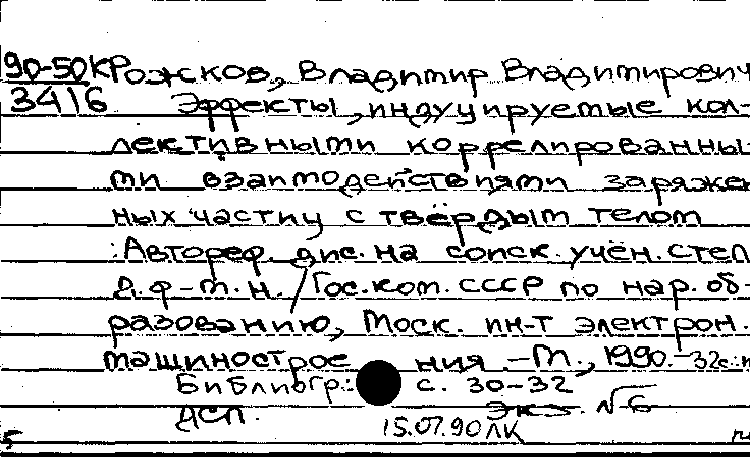 90-50К Рожков, Владимир Владимирович
3416 Эффекты, индуцируемые кол-
лективными коррелированны-
ми взаимодействиями заряжен
ных частиц с твёрдым телом
: Автореф. дис. на соиск. учён. степ
д. ф-м. н. / Гос. ком. СССР по нар. об-
разованию, Моск. ин-т электрон.
машинострое ния. - М., 1990. - 32с.:
Библиогр.: с. 30-32
ДСП. Экз. №6
15.07.90 ЛК